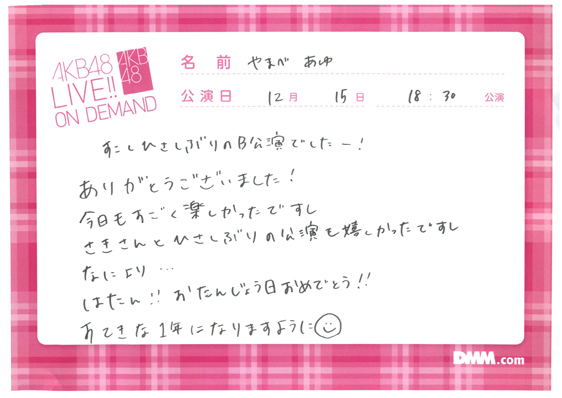 AKB48
LIVE!!
ON DEMAND
AKB
48
名前 やまべ あゆ
公演日 12月 15日 18:30 公演
すこしひさしぶりのB公演でしたー!
ありがとうございました!
今日もすごく楽しかったですし
さきさんとひさしぶりの公演も嬉しかったですし
なにより…
はたん!!おたんじょう日おめでとう!!
すてきな1年になりますように
DMM.com